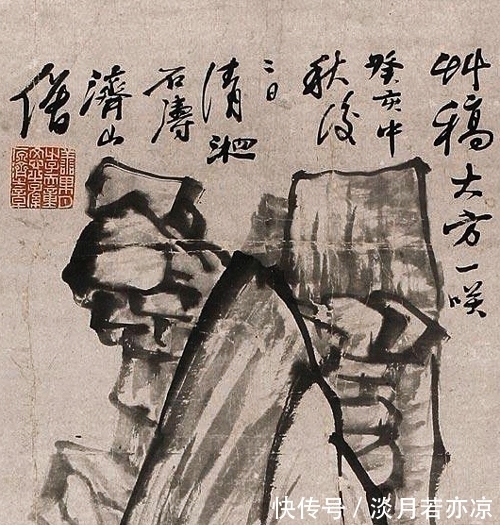 艸稿大方一咲
癸亥中
秋後
二日
清湘
石濤
濟山
僧
快传号/淡月若亦凉